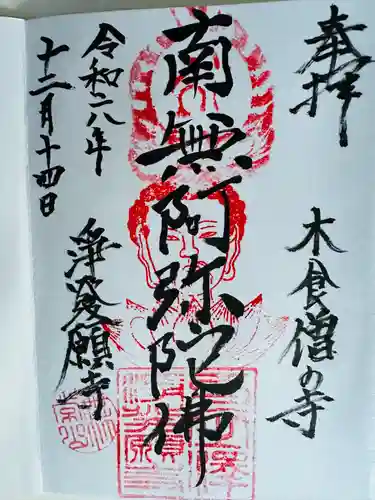 奉拝
木食僧の寺
南無阿弥陀佛
令和六年
十二月十四日
浄発願寺